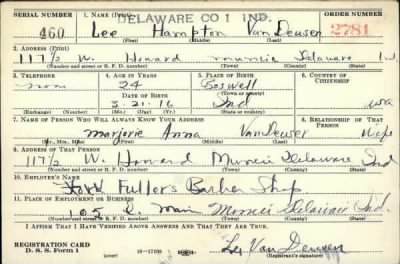 SERIAL NUMBER 1. NAME (Print) DELAWARE CO 1 IND. ORDER NUMBER
460 Lee Hampton VanDeusen 2781
(First) (Middle) (Last)
2. ADDRESS (Print)
117½ W. Howard Muncie Delaware Ind.
(Number and street or R. F. D. number) (Town) (County) (State)
3. TELEPHONE 4. AGE IN YEARS 5. PLACE OF BIRTH 6. COUNTRY OF CITIZENSHIP
none 24 Boswell
DATE OF BIRTH (Town or county)
3-21-16 Ind USA
(Exchange) (Number) (Mo.) (Day) (Yr.) (State or country)
7. NAME OF PERSON WHO WILL ALWAYS KNOW YOUR ADDRESS 8. RELATIONSHIP OF THAT PERSON
Marjorie Anna VanDeusen Wife
(Mr., Mrs., Miss) (First) (Middle) (Last)
9. ADDRESS OF THAT PERSON
117½ W. Howard Muncie Delaware Ind
(Number and street or R. F. D. number) (Town) (County) (State)
10. EMPLOYER'S NAME
Fuller's Barber Shop
11. PLACE OF EMPLOYMENT OR BUSINESS
105 E. Main Muncie Delaware Ind.
(Number and street or R. F. D. number) (Town) (County) (State)
I AFFIRM THAT I HAVE VERIFIED ABOVE ANSWERS AND THAT THEY ARE TRUE.
REGISTRATION CARD
D. S. S. Form 1 16-17105 Lee Van Deusen
(Registrant's signature)